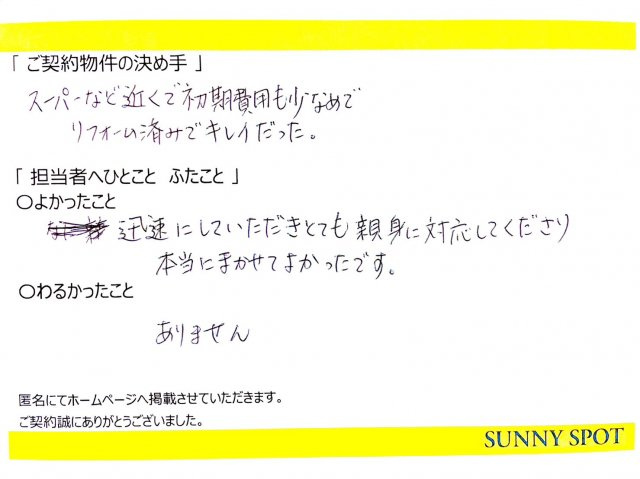 「 ご契約物件の決め手 」
スーパーなど近くで初期費用も少なめで
リフォーム済みでキレイだった。
「 担当者へひとこと ふたこと 」
○よかったこと
迅速にしていただきとても親身に対応してくださり
本当にまかせてよかったです。
○わるかったこと
ありません
匿名にてホームページへ掲載させていただきます。
ご契約誠にありがとうございました。
SUNNY SPOT